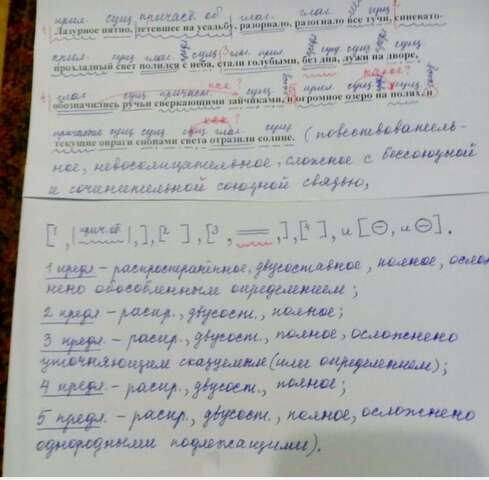 прил. сущ. причаст. об. глаг. глаг. сущ.
Лазурное пятно, летевшее на усадьбу, разорвало, разогнало все тучи, синевато-
сущ. глаг. сущ. прил.
прохладный свет полился с неба, стали голубыми, без дна, лужи на дворе,
глаг. сущ. причаст. как? сущ. какое? сущ.
обозначились ручьи сверкающими зайчиками, и огромное озеро на полях, и
причастие сущ. сущ. как? глаг. сущ.
текущие овраги снопами света отразили солнце. (повествователь-
ное, невосклицательное, сложное с бессоюзной
и сочинительной союзной связью,
[1 ,|прич.об.|,],[2 ],[3 , ,],[4 ], и [ , и ].
1 предл. - распространённое, двусоставное, полное, ослож
нено обособленным определением;
2 предл. - распр., двусост., полное;
3 предл. - распр., двусост., полное, осложнено
уточняющим сказуемым (или определением);
4 предл. - распр., двусост., полное;
5 предл. - распр., двусост., полное, осложнено
однородными подлежащими).